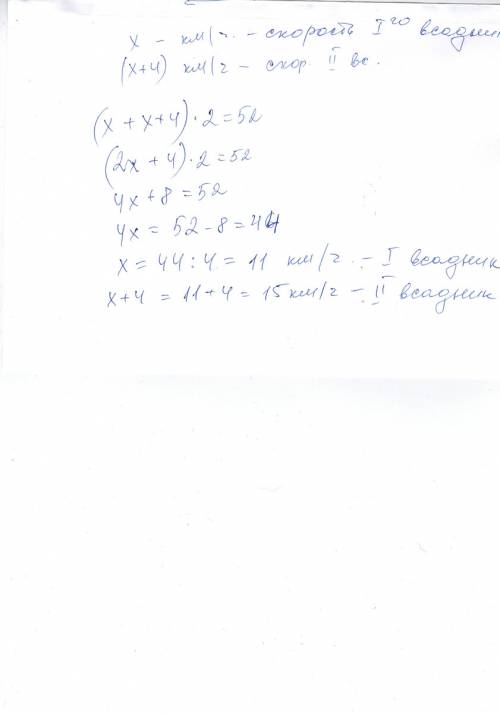 x - км/ч. - скорость I го всадник
(x+4) км/ч - скор. II вс.
(x + x+4) · 2 = 52
(2x + 4) · 2 = 52
4x + 8 = 52
4x = 52 - 8 = 44
x = 44 : 4 = 11 км/ч. - I всадник
x+4 = 11+4 = 15 км/ч - II всадник